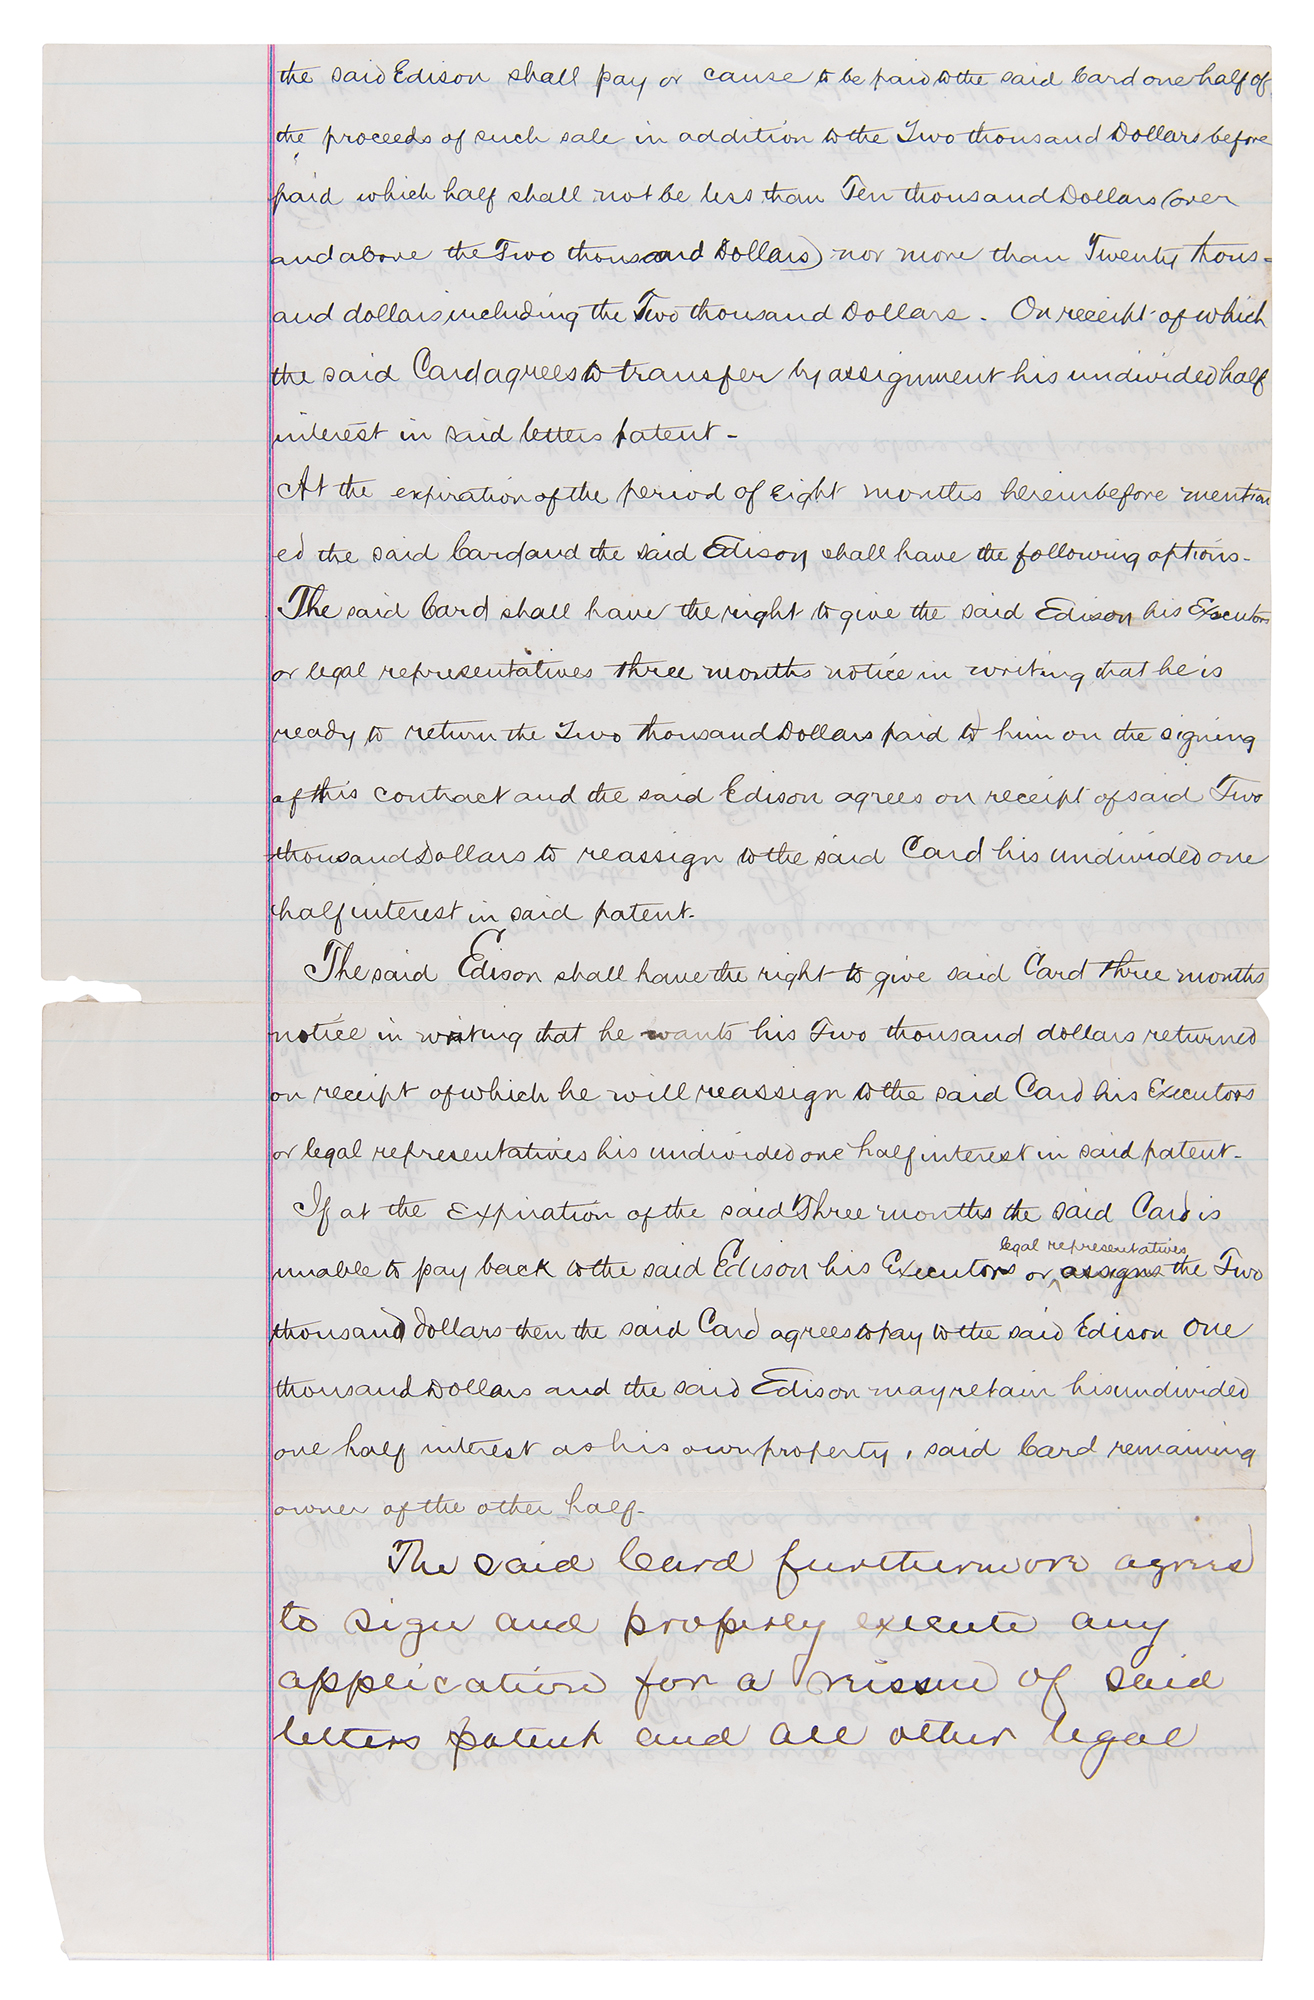 the said Edison shall pay or cause to be paid to the said Card one half of
the proceeds of such sale in addition to the Two thousand Dollars before
paid which half shall not be less than Ten thousand Dollars (over
and above the Two thousand Dollars) nor more than Twenty thous-
and dollars including the Two thousand Dollars. On receipt of which
the said Card agrees to transfer by assignment his undivided half
interest in said letters patent-
At the expiration of the period of Eight months hereinbefore mention
ed the said Card and the said Edison shall have the following options-
The said Card shall have the right to give the said Edison his Executors
or legal representatives three months notice in writing that he is
ready to return the Two thousand Dollars paid to him on the signing
of this contract and the said Edison agrees on receipt of said Two
thousand Dollars to reassign to the said Card his undivided one
half interest in said patent-
The said Edison shall have the right to give said Card three months
notice in writing that he wants his Two thousand dollars returned
on receipt of which he will reassign to the said Card his Executors
or legal representatives his undivided one half interest in said patent-
If at the Expiration of the said Three months the said Card is
legal representatives
unable to pay back to the said Edison his Executors or assigns the Two
thousand dollars then the said Card agrees to pay to the said Edison One
thousand Dollars and the said Edison may retain his undivided
one half interest as his own property, said Card remaining
owner of the other half-
The said Card furthermore agrees
to sign and properly execute any
application for a reissue of said
letters patent and all other legal